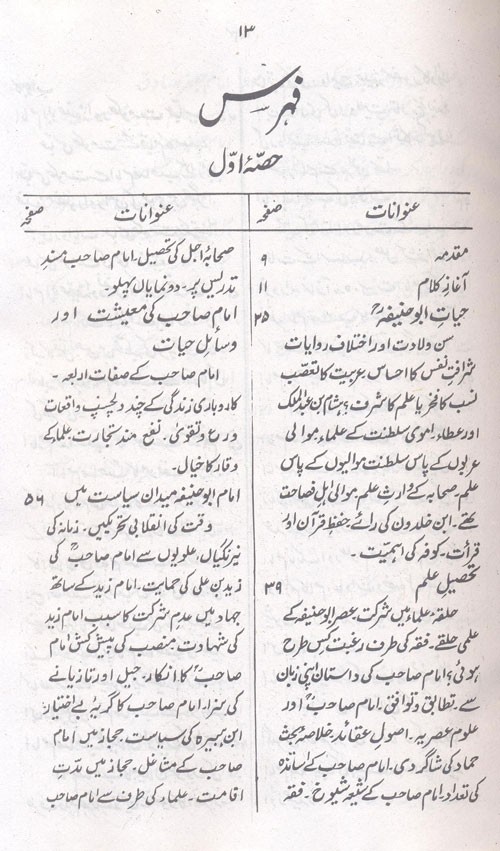 ۱۳
فہرس
حصّۂ اوّل
عنوانات صفحہ
مقدمہ ۹
آغاز کلام ۱۱
حیات ابو حنیفہؒ ۲۵
سن ولادت اور اختلاف روایات
شرافت نفس کا احساس عربیت کا تعصب
نسب کا فخر یا علم کا شرف؟ ہشام بن عبدالملک
اور عطاء۔ اموی سلطنت کے علماء، موالی
عربوں کے پاس سلطنت موالیوں کے پاس
علم۔ صحابہ کے وارث علم۔ موالی اہل فصاحت
تھے۔ ابن خلدون کی رائے۔ حفظ قرآن اور
قرأت۔ کوفہ کی اہمیت۔
تحصیل علم ۳۹
حلقۂ علماء میں شرکت۔ عصر ابو حنیفہ کے
علمی حلقے۔ فقہ کی طرف رغبت کس طرح
ہوئی؟ امام صاحب کی داستان اپنی زبان
سے۔ تطابق و توافق۔ امام صاحبؒ اور
علوم عصریہ۔ اصول عقائد۔ خلاصہ بحث
حماد کی شاگردی۔ امام صاحب کے اساتذہ
کی تعداد۔ امام صاحب کے شیعہ شیوخ۔ فقہ
عنوانات صفحہ
صحابۂ اجل کی تحصیل۔ امام صاحب مسند
تدریس پر۔ دو نمایاں پہلو۔
امام صاحب کی معیشت اور
وسائل حیات
امام صاحب کے صفات اربعہ۔
کاروباری زندگی کے چند دلچسپ واقعات
ورع و تقویٰ۔ نفع مند تجارت۔ علماء کے
وقار کا خیال۔
امام ابو حنیفہ میدان سیاست میں ۵۶
وقت کی انقلابی تحریکیں۔ زمانہ کی
نیرنگیاں، علویوں سے امام صاحبؒ کی
زید بن علی کی حمایت۔ امام زید کے ساتھ
جہاد میں عدم شرکت کا سبب امام زید
کی شہادت۔ منصب کی پیش کش امام
صاحبؒ کا انکار۔ جیل اور تازیانے
کی سزا۔ امام صاحب کا گریۂ بے اختیار
ابن ہبیرہ کی سیاست۔ حجاز میں امام
صاحب کے مشاغل۔ حجاز میں مدت
اقامت۔ علماء کی طرف سے امام صاحب